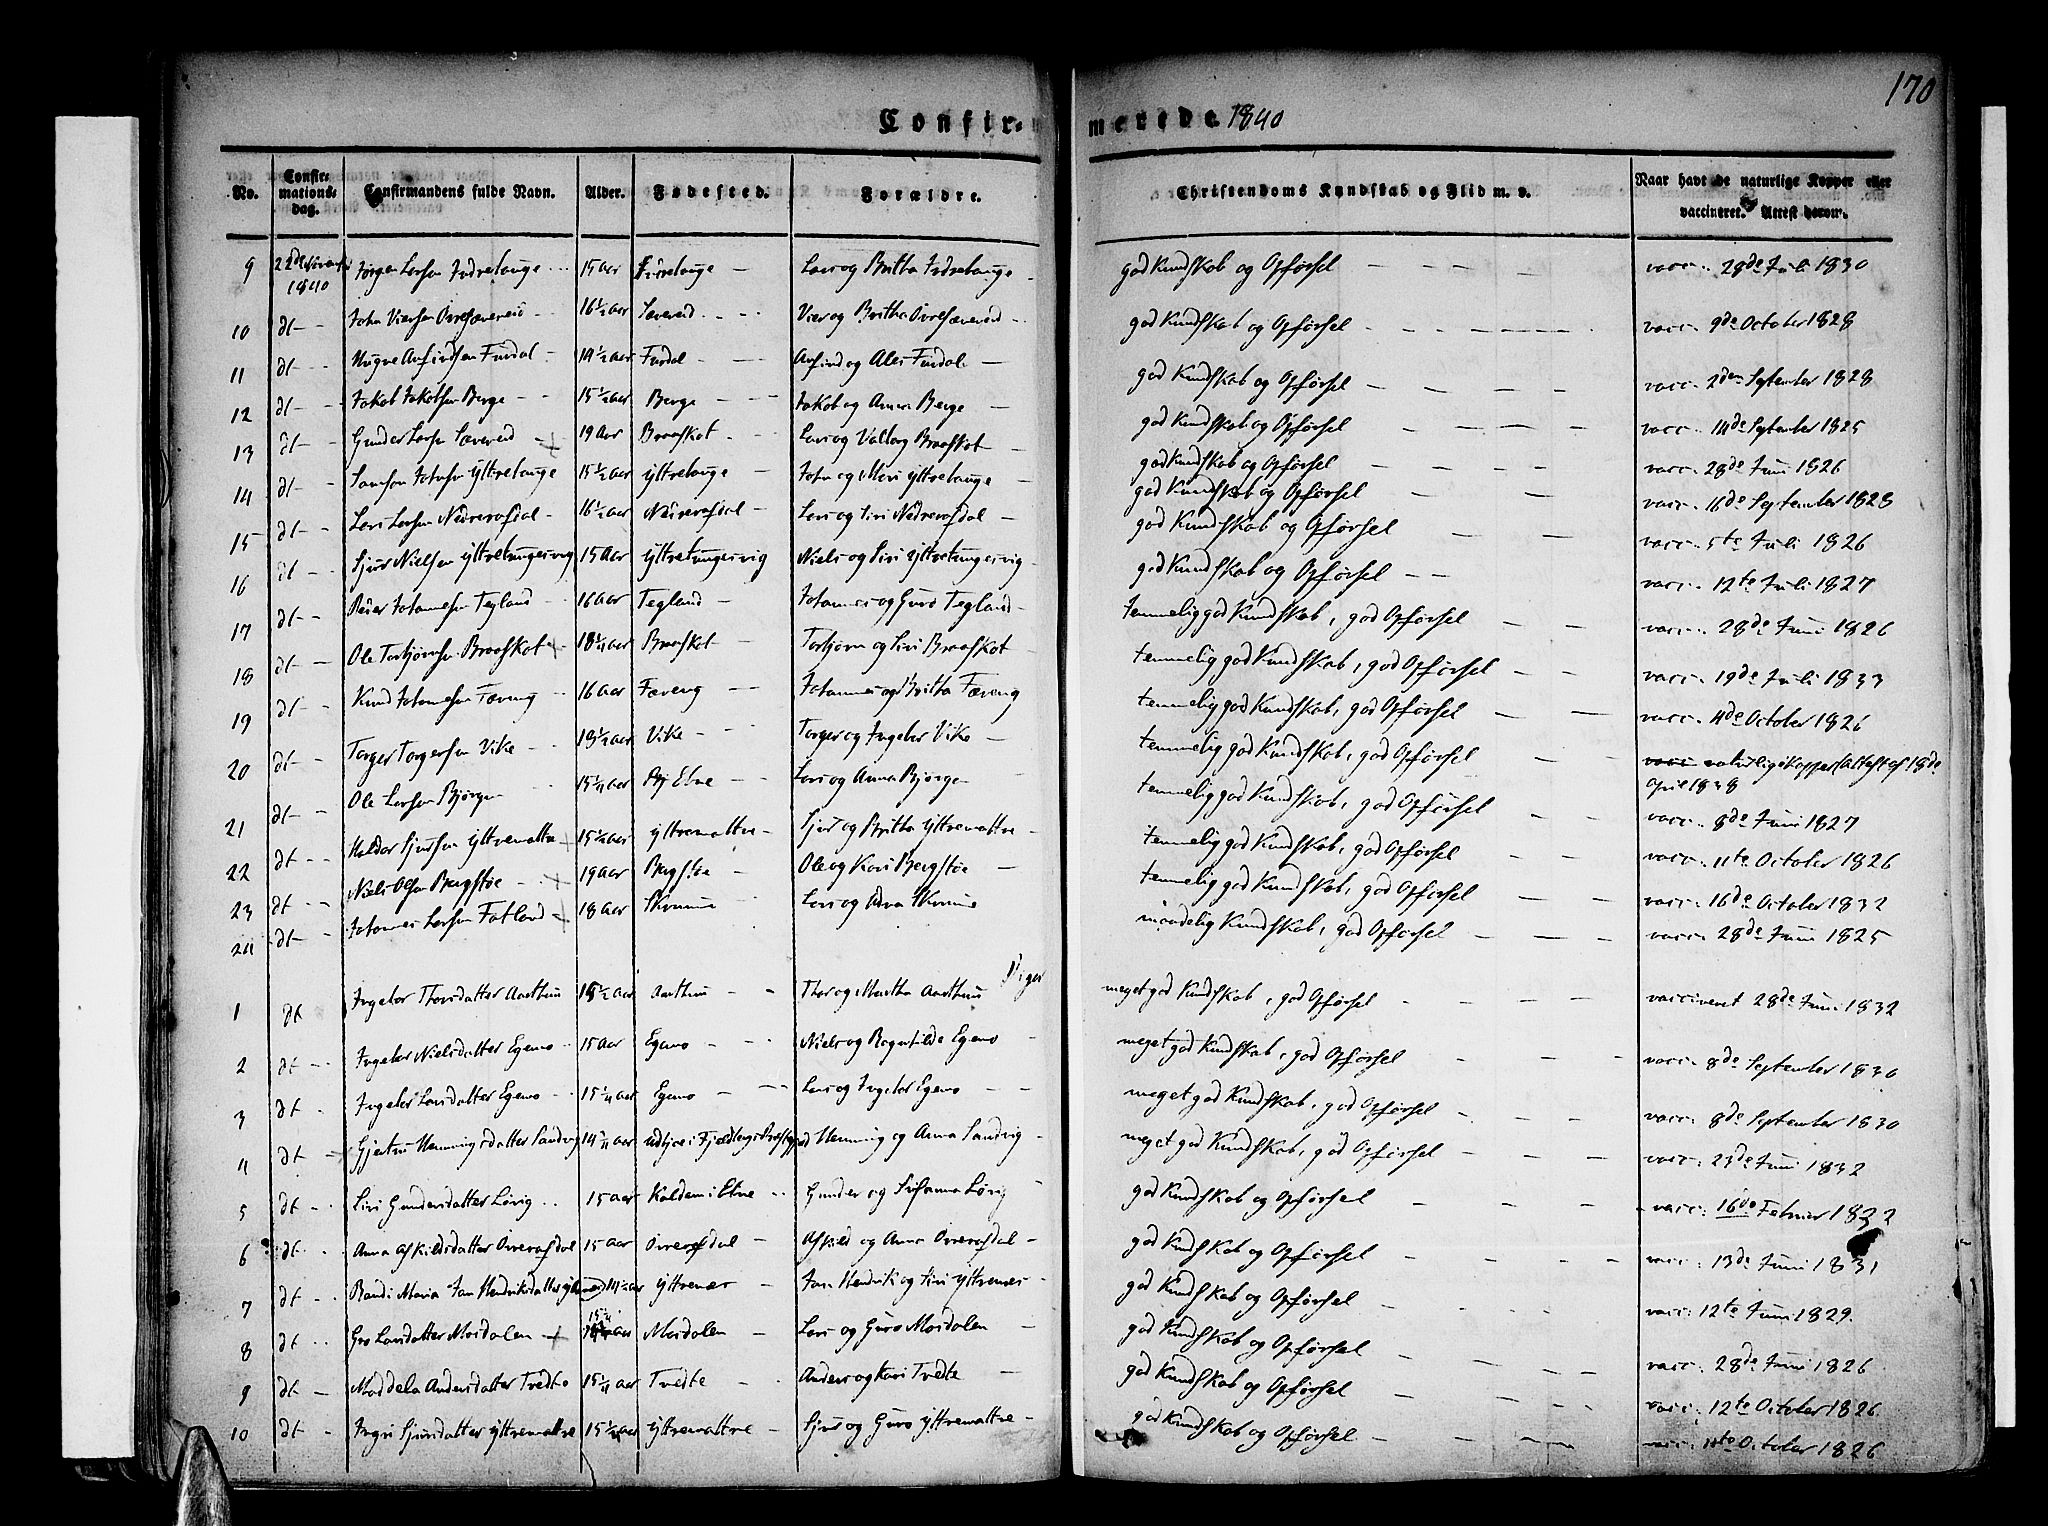 170
Confirmerede 1840
No. Confirmationsdag. Confirmandens fulde Navn. Alder. Fødested. Forældre. Christendoms Kundskab og Flid m. v. Naar havt de naturlige Kopper eller vaccineret. Attest herom.
9 22de November 1840 Jørgen Larsen Indretunge 15 aar Indretunge Lars og Britha Indretunge god Kundskab og Opførsel vacc. 28de Juli 1830
10 dt John Viersen Øvresævereid 16½ aar Sævereid Vier og Britha Øvresævereid god Kundskab og Opførsel vacc. 9de October 1828
11 dt Arfindsen Furdal 14½ aar Furdal Arfind og Ales Furdal god Kundskab og Opførsel vacc. 2den September 1828
12 dt Jakob Jakobsen Berge 15½ aar Berge Jakob og Anna Berge god Kundskab og Opførsel vacc. 14de September 1825
13 dt Gunder Larsen Sævereid + 19 Aar Braaskot Lars og Valborg Braaskot god Kundskab og Opførsel vacc. 28de Juni 1826
14 dt Samson Johnsen Yttretunge 15½ aar Yttretunge John og Mari Yttretunge god Kundskab og Opførsel vacc. 16de September 1828
15 dt Lars Larsen Nedrevafdal 16½ aar Nedrevafdal Lars og Siri Nedrevafdal god Kundskab og Opførsel vacc. 5te Juli 1826
16 dt Sjur Nielsen Yttretungesvig 15 Aar Yttretungesvig Niels og Siri Yttretungesvig god Kundskab og Opførsel vacc. 12te Juli 1827
17 dt Peder Johannesen Tegland 16 aar Tegland Johannes og Guro Tegland temmelig god Kundskab, god Opførsel vacc. 28de Juni 1826
18 dt Ole Torbjørnsen Braaskot + 18¼ aar Braaskot Torbjørn og Siri Braaskot temmelig god Kundskab, god Opførsel vacc. 19de Juli 1833
19 dt Knud Johannesen Fæveng 16 aar Fæveng Johannes og Britha Fæveng temmelig god Kundskab, god Opførsel vacc. 4de October 1826
20 dt Torger Torgersen Vike Vike Torger og Ingebor Vike temmelig god Kundskab, god Opførsel naturlige Kopper (Attest af 18de April 1838
21 dt Ole Larsen Bjørgen 15¼ aar Etne Lars og Anna Bjørgen temmelig god Kundskab, god Opførsel vacc. 8de Juni 1827
22 dt Haldor Sjursen Yttremattre + 15¼ aar Yttremattre Sjur og Britha Yttremattre temmelig god Kundskab, god Opførsel vacc. 11te October 1826
23 dt Niels Olsen Bergstøe + 19 aar Bergstøe Ole og Kari Bergstøe temmelig god Kundskab, god Opførsel vacc. 16de October 1832
24 dt Johannes Larsen Fatland + 18 aar Skromme Lars og Skromme maadelig Kundskab, god Opførsel vacc. 28de Juni 1825
Piger
1 dt Ingebor Thorsdatter Aarthun 15½ aar Aarthun Thor og Martha Aarthun meget god Kundskab, god Opførsel vaccineret 28de Juni 1832
2 dt Ingebor Nielsdatter Egemo 15 aar Egemo Niels og Ragnhilde Egemo meget god Kundskab, god Opførsel vacc. 8de September 1830
3 dt Ingebor Larsdatter Egemo 15¼ aar Egemo Lars og Ingebor Egemo meget god Kundskab, god Opførsel vacc. 8de September 1830
4 dt Gjertru Henningsdatter Sandvig aar i Fjeldbergs Præstegjeld Henning og Anna Sandvig meget god Kundskab, god Opførsel vacc. 23de Juni 1832
5 dt Siri Gundersdatter Løvig 15 aar Kaldem i Etne Gunder og Susanna Løvig god Kundskab og Opførsel vacc. 16de Februar 1832
6 dt Anna Afkildsdatter Øvrevafdal 15 aar Øvrevafdal Afkild og Anna Øvrevafdal god Kundskab og Opførsel vacc. 13de Juni 1831
7 dt Randi Maria Jan Hendriksdatter Yttrenæs 14½ aar Yttrenæs Jan Hendrik og Siri Yttrenæs god Kundskab og Opførsel vacc. 12te Juni 1829.
8 dt Gro Larsdatter Mosdalen + aar Mosdalen Lars og Guro Mosdalen god Kundskab og Opførsel vacc. 28de Juni 1826
9 dt Maddela Andersdatter Tvedte 15¼ aar Tvedte Anders og Kari Tvedte god Kundskab og Opførsel vacc. 12te October 1826.
10 dt Ingri Sjursdatter Yttremattre 15¼ aar Yttremattre Sjur og Guro Yttremattre god Kundskab og Opførsel vacc. 11te October 1826